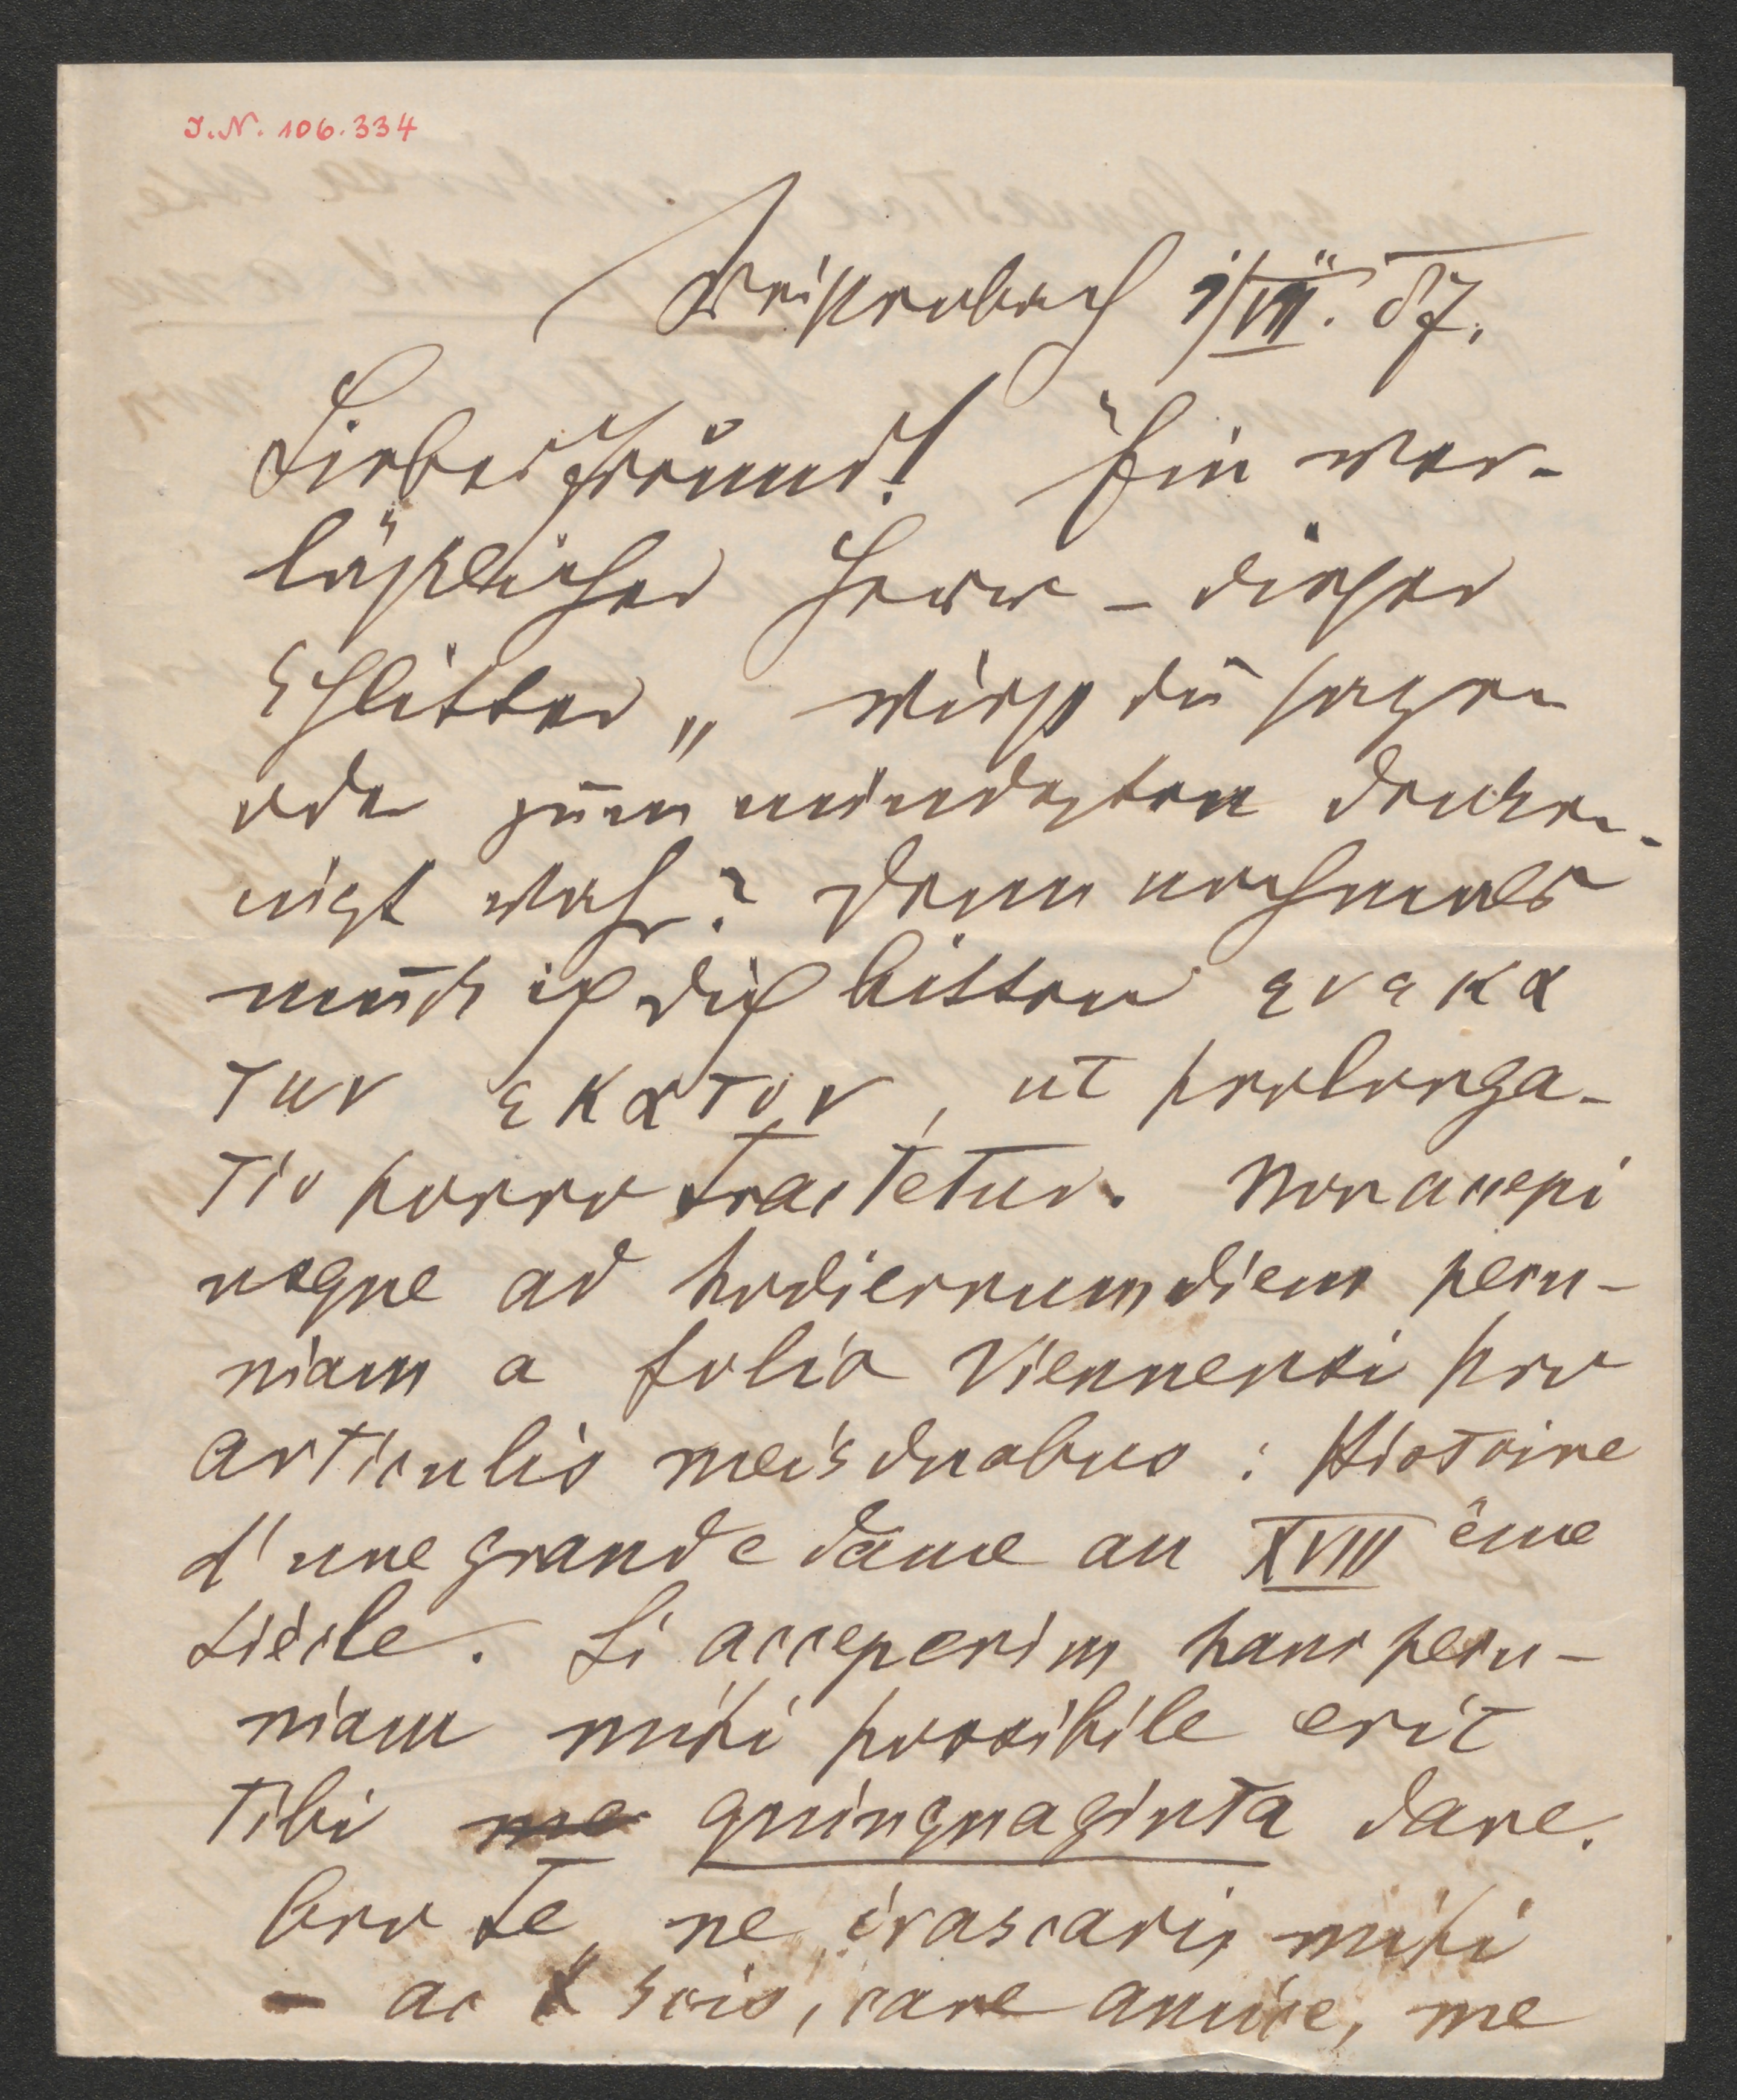 J.N. 106.334
Weissenbach 1/VII. 87.
Lieber Freund! Ein ver-
lässlicher Herr – dieser
Schlitter „ wirst du sagen
oder zum mindesten denken
nicht wahr? Denn nochmals
muss ich dich bitten ενεκα
των εκατον, ut prolonga-
tio porro tractetur. Non accepi
usque ad hodiernum diem pecu-
niam a folio Viennensi pro
articulis meis duobus: Histoire
d'une grande dame au XVIII ème
siècle. Si acceperim hanc pecu-
niam mihi possibile erit
tibi me quinquaginta dare.
Oro te, ne irascaris mihi
– ac scis, care amice, me